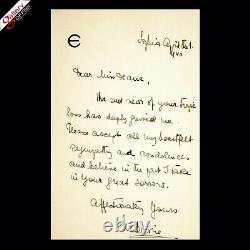 Є
Sofia April 1st
Dear Miss Deane,
The sad news of your tragic
loss has deeply grieved me
Please accept all my heartfelt
sympathy and condolences
and believe in the part I take
in your great sorrow.
Affectionately Yours
ebay